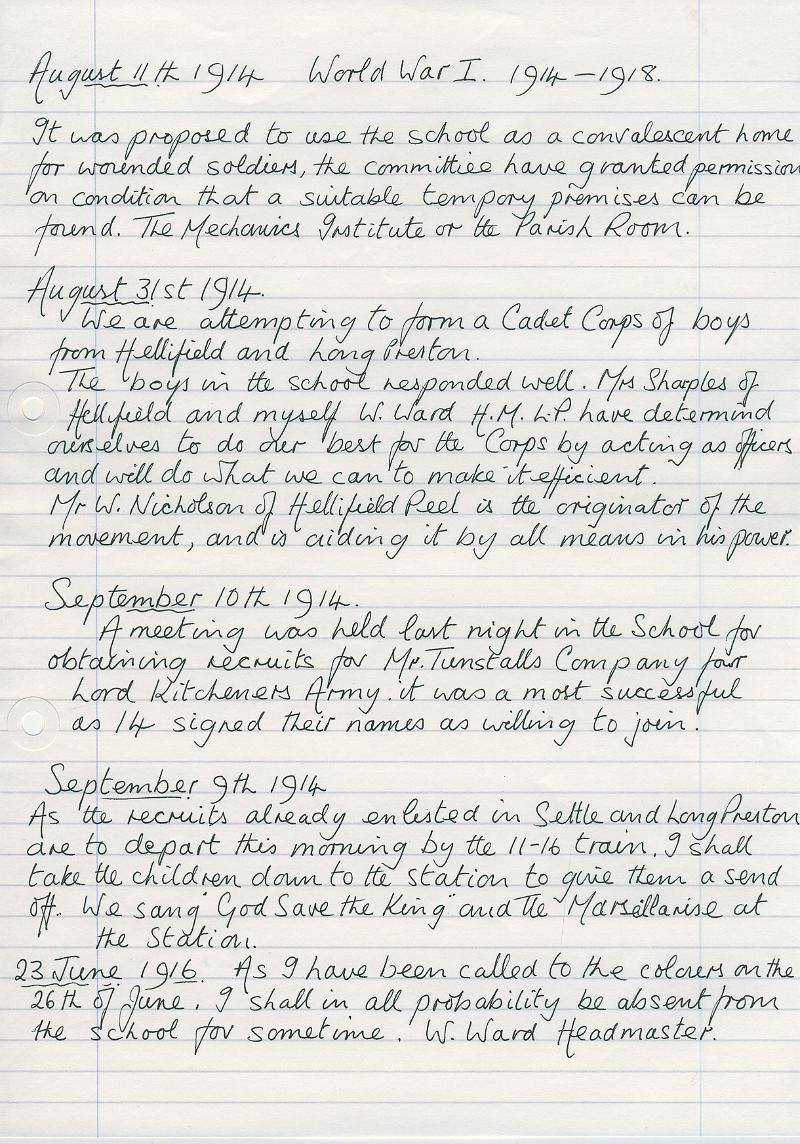 August 11th 1914 World War I. 1914-1918.
It was proposed to use the school as a convalescent home
for wounded soldiers, the committee have granted permission
on condition that a suitable tempory premises can be
found. The Mechanics Institute or the Parish Room.
August 31st 1914.
We are attempting to form a Cadet Corps of boys
from Hellifield and Long Preston.
The boys in the school responded well. Mrs Sharples of
Hellifield and myself W. Ward H.M. L.P. have determind
ourselves to do our best for the Corps by acting as officers
and will do what we can to make it efficient.
Mr W. Nicholson of Hellifield Peel is the originator of the
movement, and is aiding it by all means in his power.
September 10th 1914.
A meeting was held last night in the School for
obtaining recruits for Mr. Tunstalls Company four
Lord Kitcheners Army. it was a most successful
as 14 signed their names as willing to join.
September 9th 1914
As the recruits already enlisted in Settle and Long Preston
are to depart this morning by the 11-16 train. I shall
take the children down to the station to give them a send
off. We sang "God Save the King" and The Marsellarise at
the Station.
23 June 1916. As I have been called to the colours on the
26th of June. I shall in all probability be absent from
the school for sometime. W. Ward Headmaster.